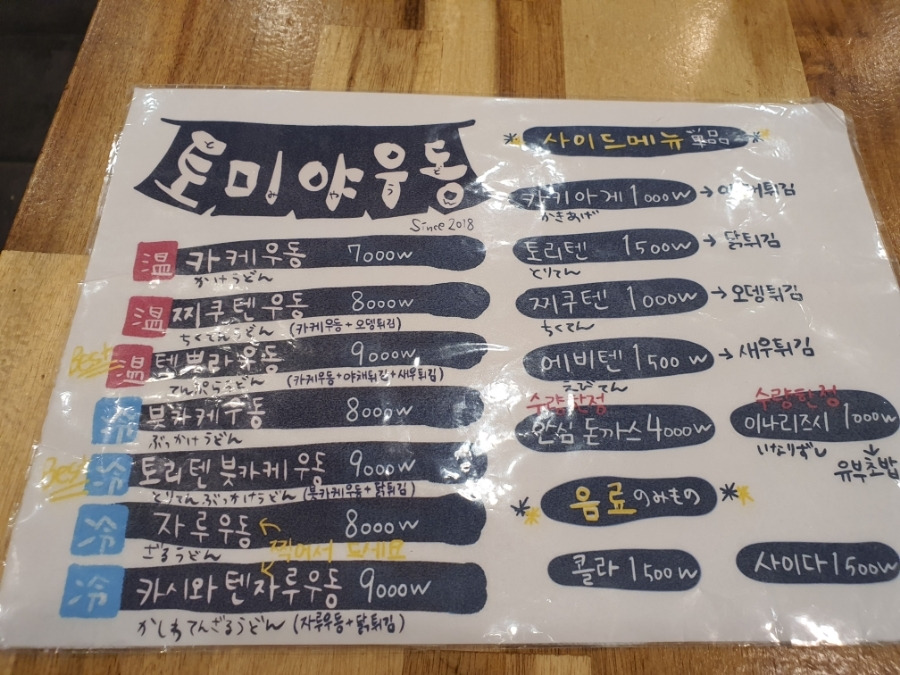 토미야우동
Since 2018
温 카케우동 7000W
かけうどん
温 찌쿠텐우동 8000W
ちくてんうどん (카케우동+오뎅튀김)
Best 温 텐뿌라우동 9000W
てんぷらうどん (카케우동+야채튀김+새우튀김)
冷 붓카케우동 8000W
ぶっかけうどん
Best 冷 토리텐붓카케우동 9000W
とりてんぶっかけうどん (붓카케우동+닭튀김)
冷 자루우동 8000W
ざるうどん 찍어서 드세요
冷 카시와텐자루우동 9000W
かしわてんざるうどん (자루우동+닭튀김)
사이드메뉴
카키아게 1000W → 야채튀김
かきあげ
토리텐 1500W → 닭튀김
とりてん
찌쿠텐 1000W → 오뎅튀김
ちくてん
에비텐 1500W → 새우튀김
えびてん
수량한정
안심 돈까스 4000W
수량한정
이나리즈시 1000W
いなりずし
유부초밥
음료 のみもの
콜라 1500W
사이다 1500W